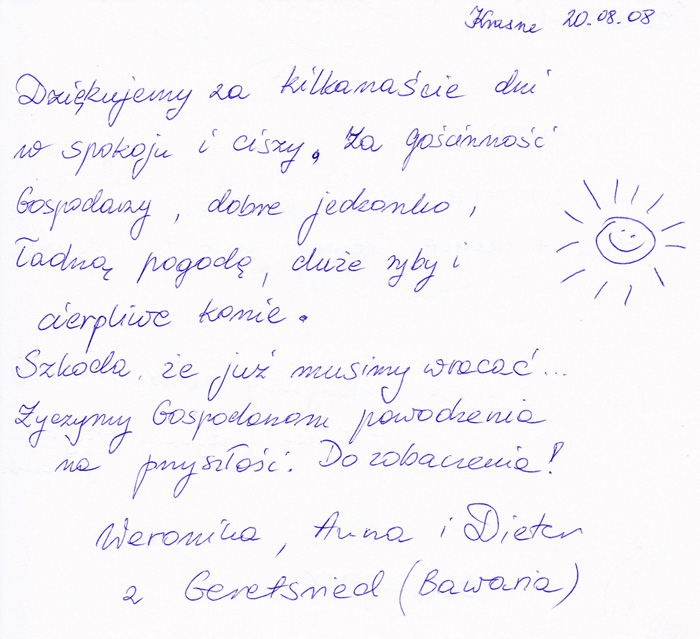 Krasne 20.08.08
Dziękujemy za kilkanaście dni
w spokoju i ciszy, za gościnność
Gospodarzy, dobre jedzonko,
ładną pogodę, duże ryby i
cierpliwe konie.
Szkoda, że już musimy wracać...
Życzymy Gospodarzom powodzenia
na przyszłość. Do zobaczenia!
Weronika, Anna i Dieter
z Geretsried (Bawaria)